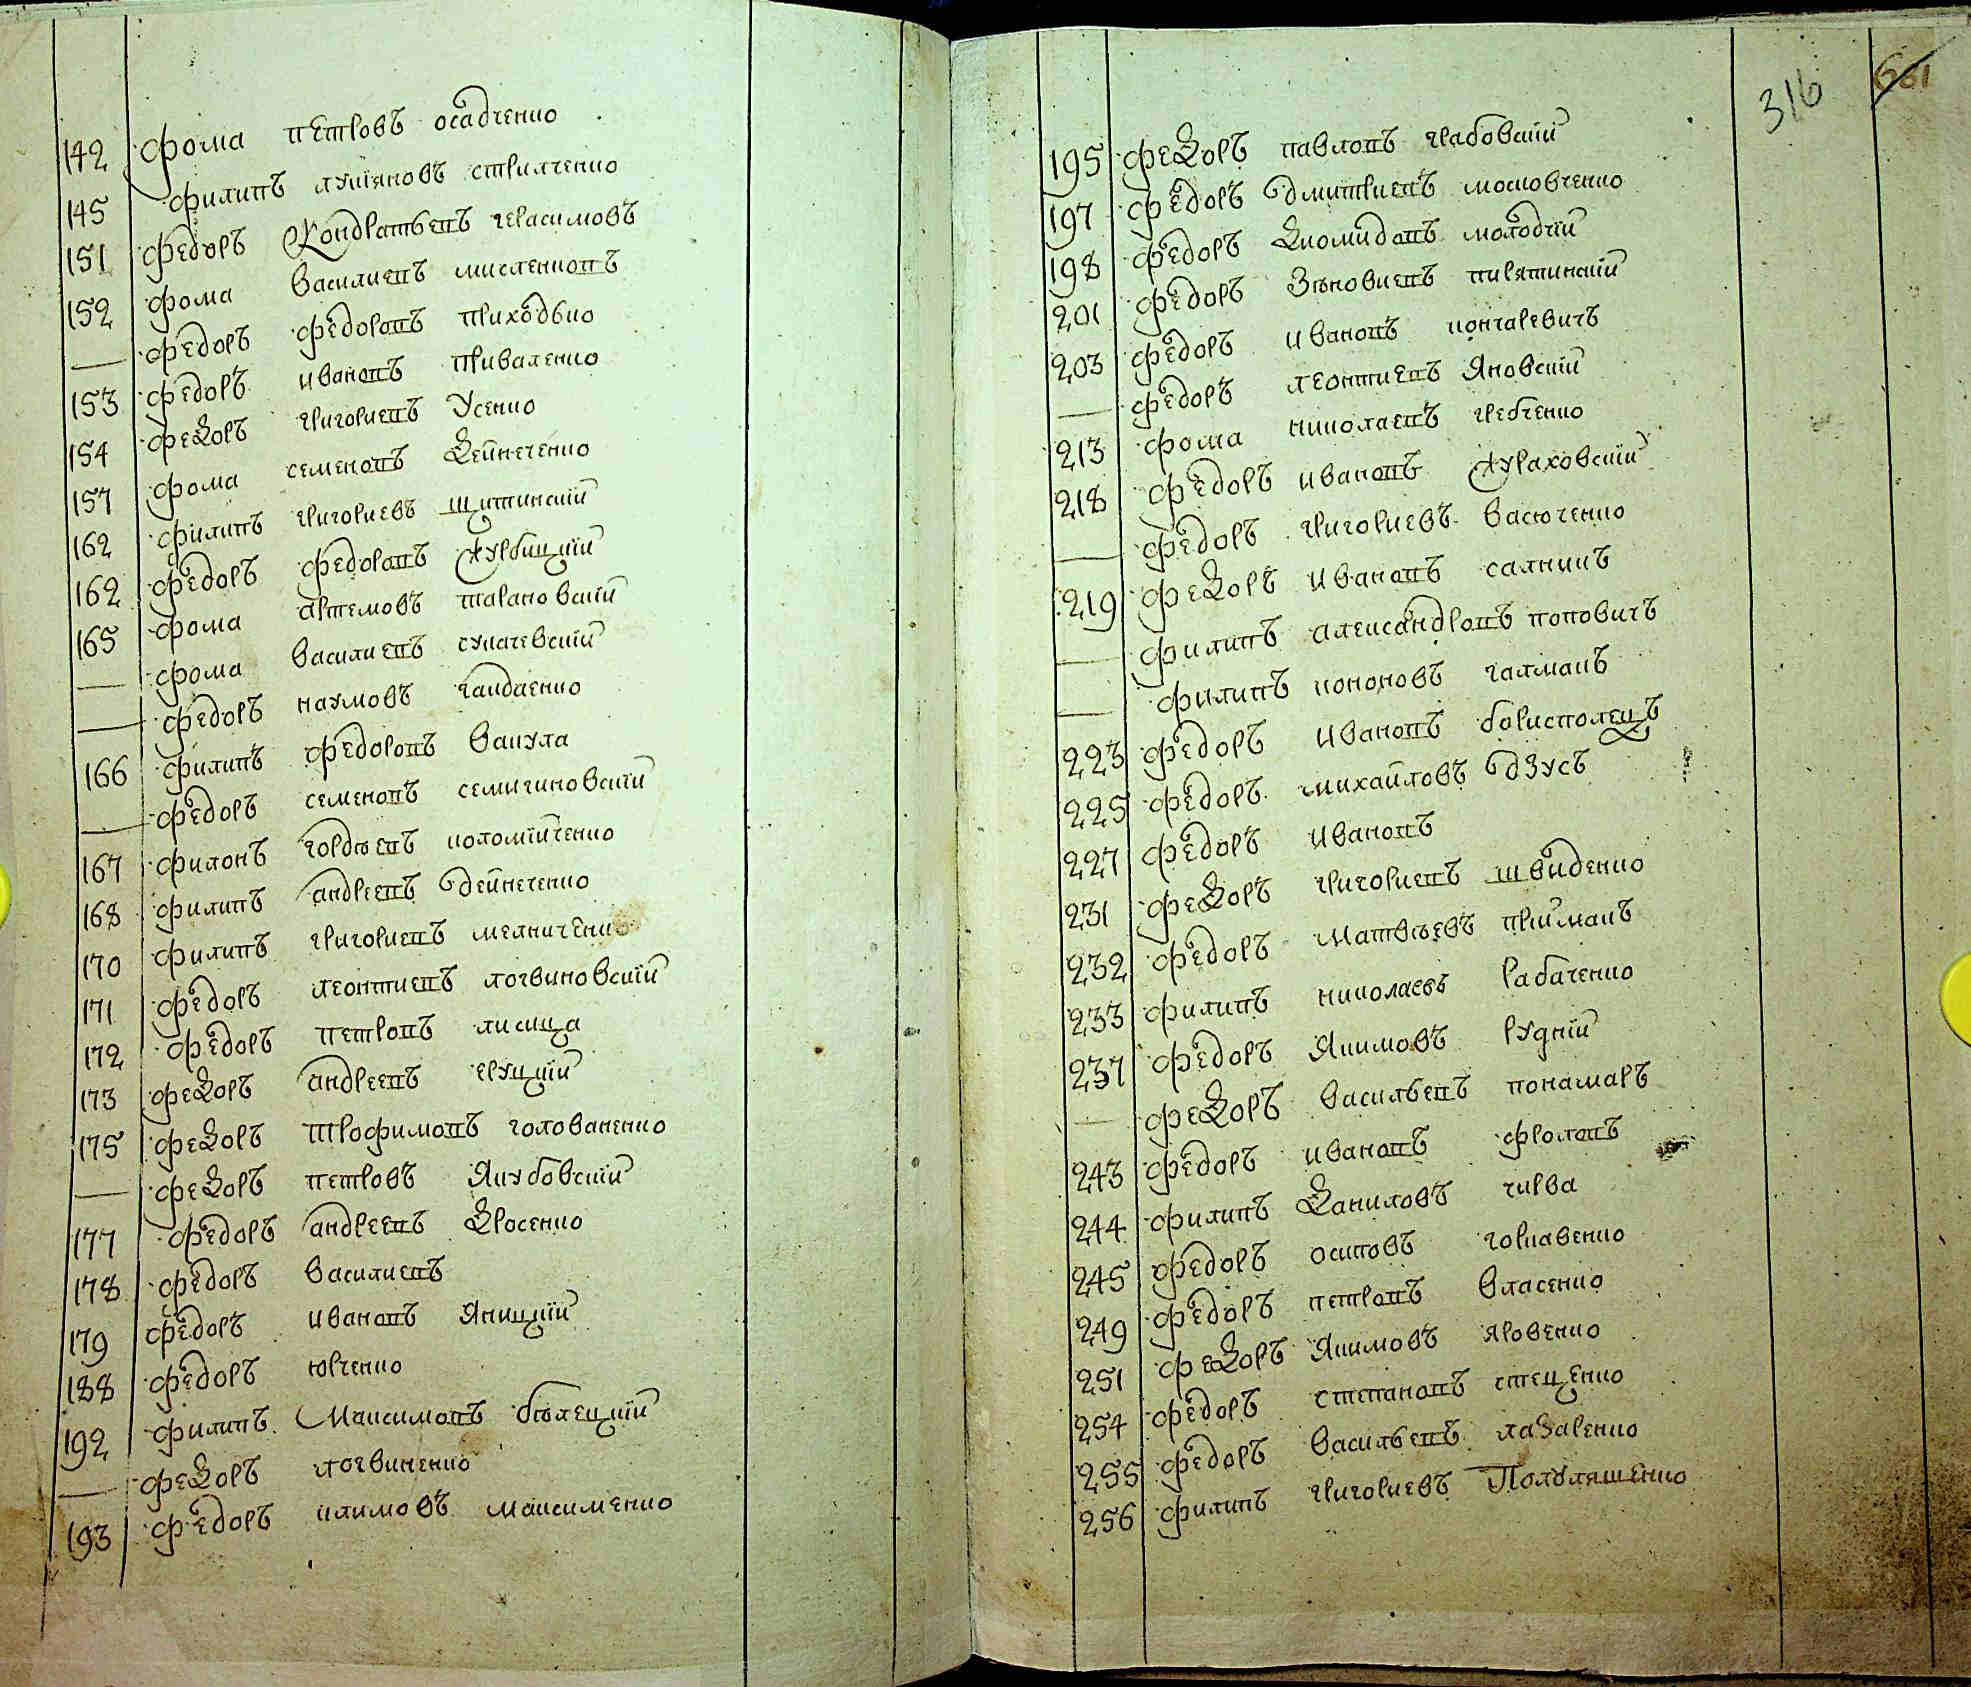 142 Фома петровъ осадченко
145 Филипъ лукіановъ стрилченко
151 Федоръ Кондратьевъ герасимовъ
152 Фома Василиевъ мисленковъ
— Федоръ федоровъ приходько
153 Федоръ ивановъ приваленко
154 Федоръ григориевъ Усенко
157 Фома семеновъ Дейнеченко
162 Филипъ григориевъ щитинский
162 Федоръ федоровъ Журбицкий
165 Фома артемовъ тарановский
— Фома Василиевъ сукачевский
— Федоръ наумовъ гайдаенко
166 Филипъ федоровъ Вакула
— Федоръ семеновъ семигиновский
167 Филонъ гордѣевъ коломійченко
168 Филипъ андреевъ дейнеченко
170 Филипъ григориевъ мелниченко
171 Федоръ леонтиевъ логвиновский
172 Федоръ петровъ лисица
173 Федоръ андреевъ
175 Федоръ трофимовъ голованенко
— Федоръ петровъ Якубовский
177 Федоръ андреевъ Дросенко
178 Федоръ Василиевъ
179 Федоръ ивановъ Яницкий
188 Федоръ юрченко
192 Филипъ Максимовъ белецкий
— Федоръ логвиненко
193 Федоръ климовъ максименко
316 661
195 Федоръ павловъ грабовский
197 Федоръ дмитриевъ московченко
198 Федоръ Диомидовъ молодий
201 Федоръ Зѣновиевъ пирятинский
203 Федоръ ивановъ кончаревичъ
— Федоръ леонтиевъ Яновский
213 Фома николаевъ гребченко
218 Федоръ ивановъ Жураховский
— Федоръ григориевъ Васюченко
219 Федоръ ивановъ салникъ
— Филипъ александровъ поповичъ
— Филипъ кононовъ чалманъ
223 Федоръ ивановъ борисполецъ
225 Федоръ михайловъ дзусъ
227 Федоръ ивановъ
231 Федоръ григориевъ швиденко
232 Федоръ Матвѣевъ приймакъ
233 Филипъ николаевъ Рабаченко
237 Федоръ Якимовъ Рудний
— Федоръ Васильевъ понамаръ
243 Федоръ ивановъ фроловъ
244 Филипъ Даниловъ чирва
245 Федоръ осиповъ горкавенко
249 Федоръ петровъ Власенко
251 Федоръ Якимовъ яровенко
254 Федоръ степановъ стеценко
255 Федоръ Васильевъ лазаренко
256 Филипъ григориевъ Полуляшенко